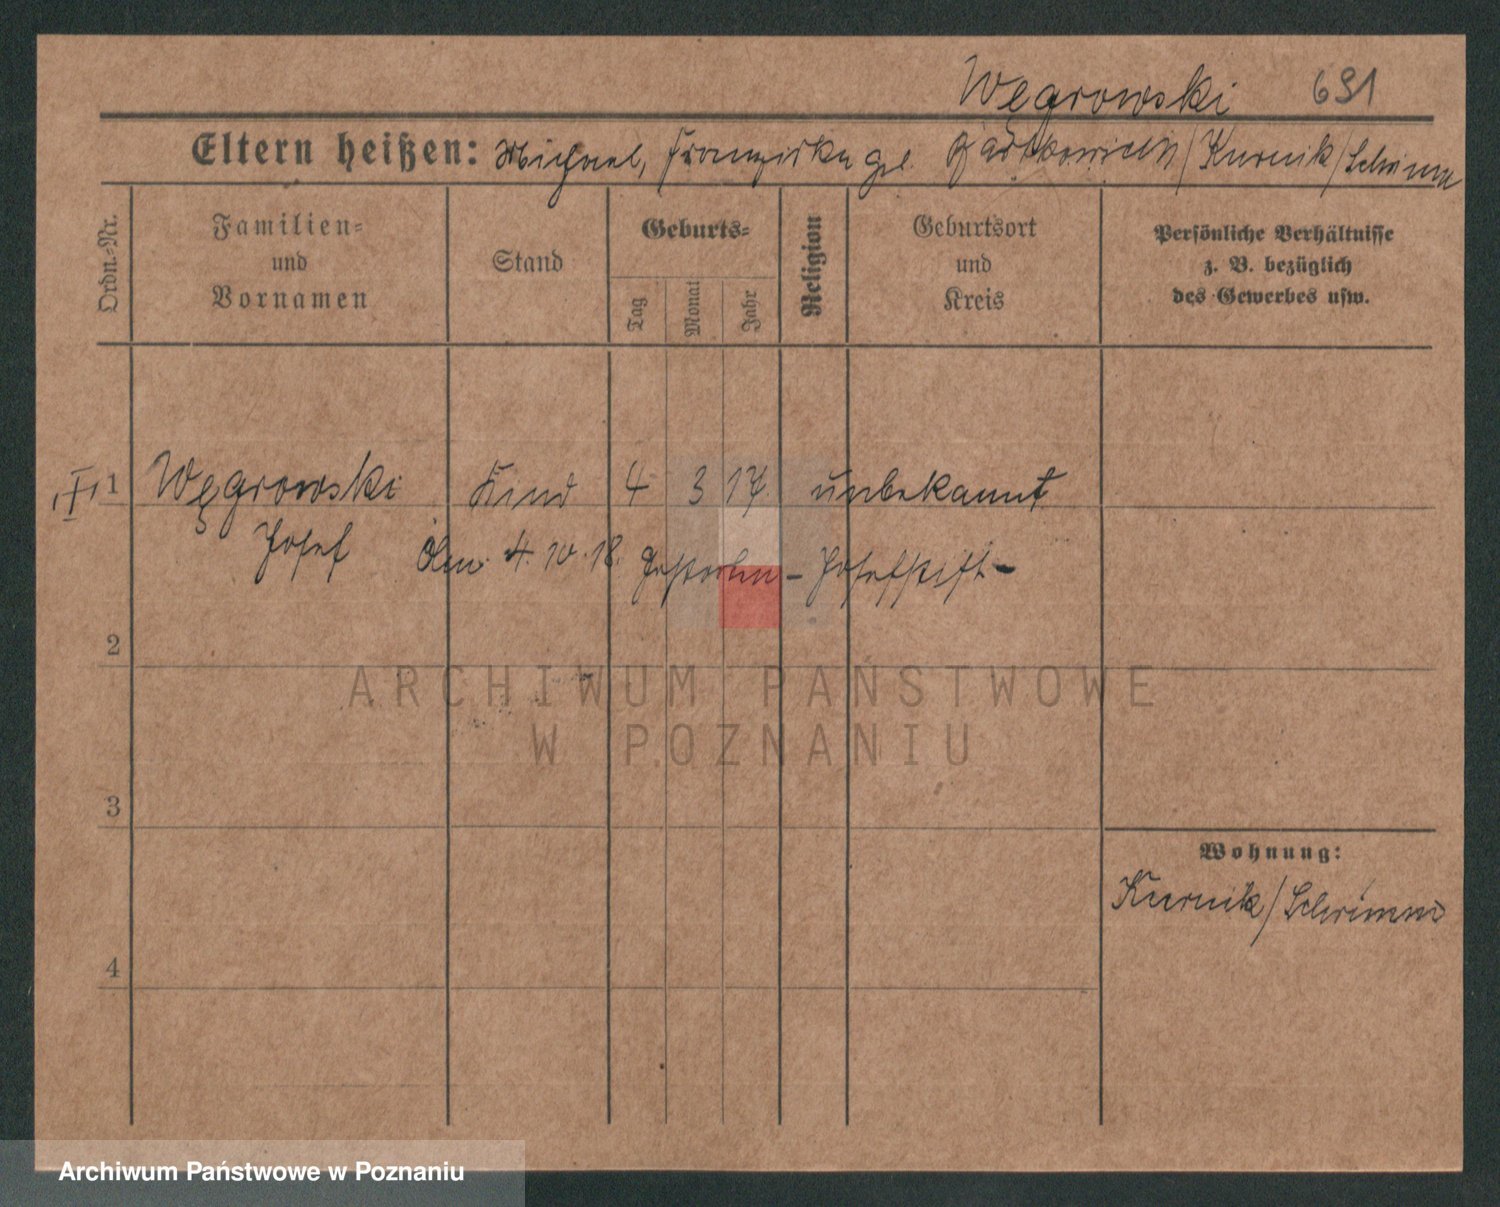 Węgrowski 691
Eltern heißen: Michael, Franziska geb. Bartkowiak / Kurnik / Schrimm
Ordn.-Nr.
Familien-
und
Vornamen
Stand
Geburts-
Tag
Monat
Jahr
Religion
Geburtsort
und
Kreis
Persönliche Verhältnisse
z. B. bezüglich
des Gewerbes usw.
1 Węgrowski Kind 4 3 17 unbekannt
Josef Am 4.10.18. Gestorben – Josefstift –
2
ARCHIWUM PAŃSTWOWE
W POZNANIU
3
Wohnung:
Kurnik / Schrimm
4
Archiwum Państwowe w Poznaniu